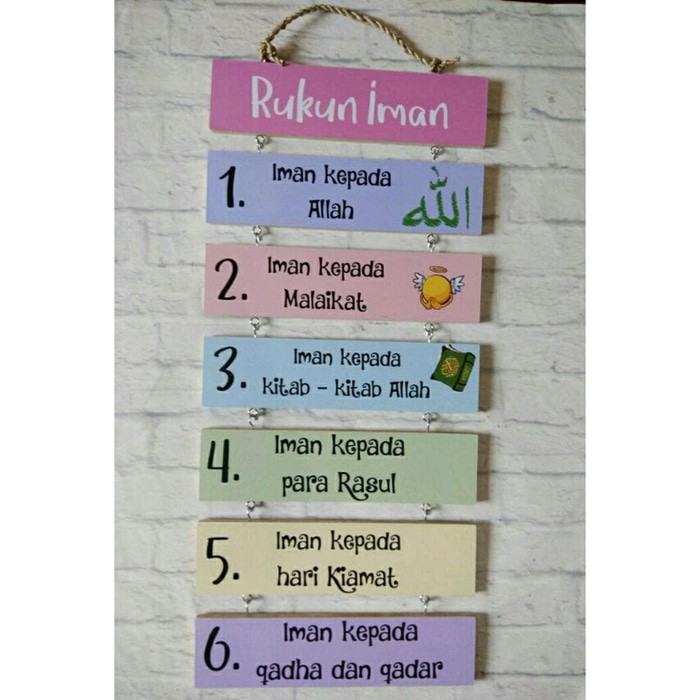 Rukun İman
1. Iman kepada
Allah
الله
2. Iman kepada
Malaikat
3. Iman kepada
kitab - kitab Allah
4. Iman kepada
para Rasul
5. Iman kepada
hari Kiamat
6. Iman kepada
qadha dan qadar